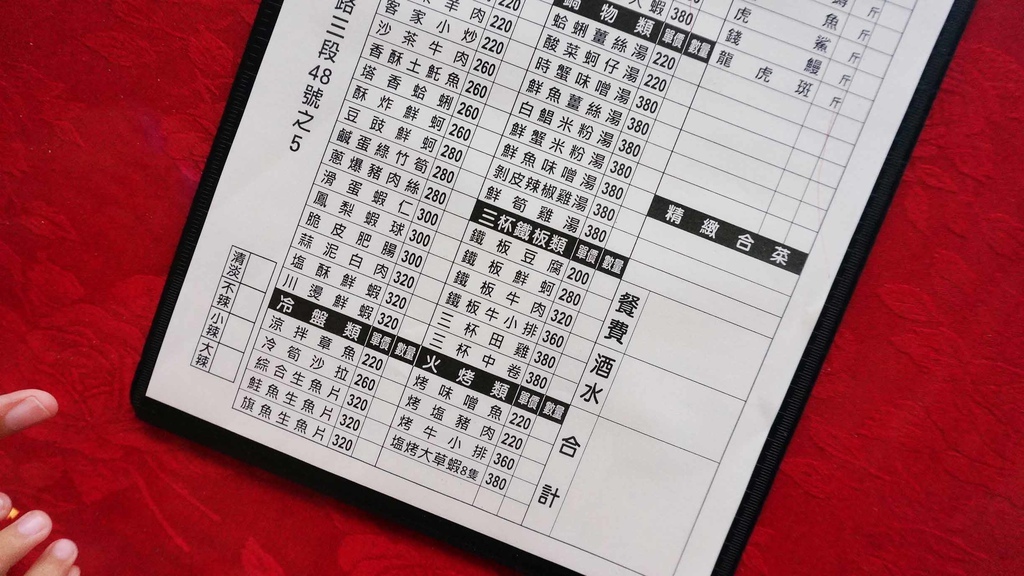 路三段48號之5
羊肉 220
客家小炒 220
沙茶牛肉 220
香酥土魠魚 260
塔香蛤蜊 260
酥炸鮮蚵 260
豆豉鮮蚵 280
鹹蛋綠竹筍 280
蔥爆豬肉絲 280
滑蛋蝦仁 300
鳳梨蝦球 300
脆皮肥腸 300
蒜泥白肉 320
塩酥鮮蝦 320
川燙鮮蝦 320
冷盤類 單價 數量
涼拌章魚 220
冷筍沙拉 260
綜合生魚片 320
鮭魚生魚片 320
旗魚生魚片 320
清淡
不辣
小辣
大辣
蝦 380
鍋物類 單價 數量
蛤蜊薑絲湯 220
酸菜蚵仔湯 220
時蟹味噌湯 380
鮮魚薑絲湯 380
白鯧米粉湯 380
鮮蟹米粉湯 380
鮮魚味噌湯 380
剝皮辣椒雞湯 380
鮮筍雞湯 380
三杯鐵板類 單價 數量
鐵板豆腐 200
鐵板鮮蚵 280
鐵板牛肉 320
鐵板牛小排 360
三杯田雞 380
三杯中卷 380
火烤類 單價 數量
烤味噌魚 220
烤塩豬肉 220
烤牛小排 360
塩烤大草蝦8隻 380
斤
虎魚 斤
錢鯊 斤
鱸鰻 斤
龍虎斑 斤
精緻合菜
餐費
酒水
合計